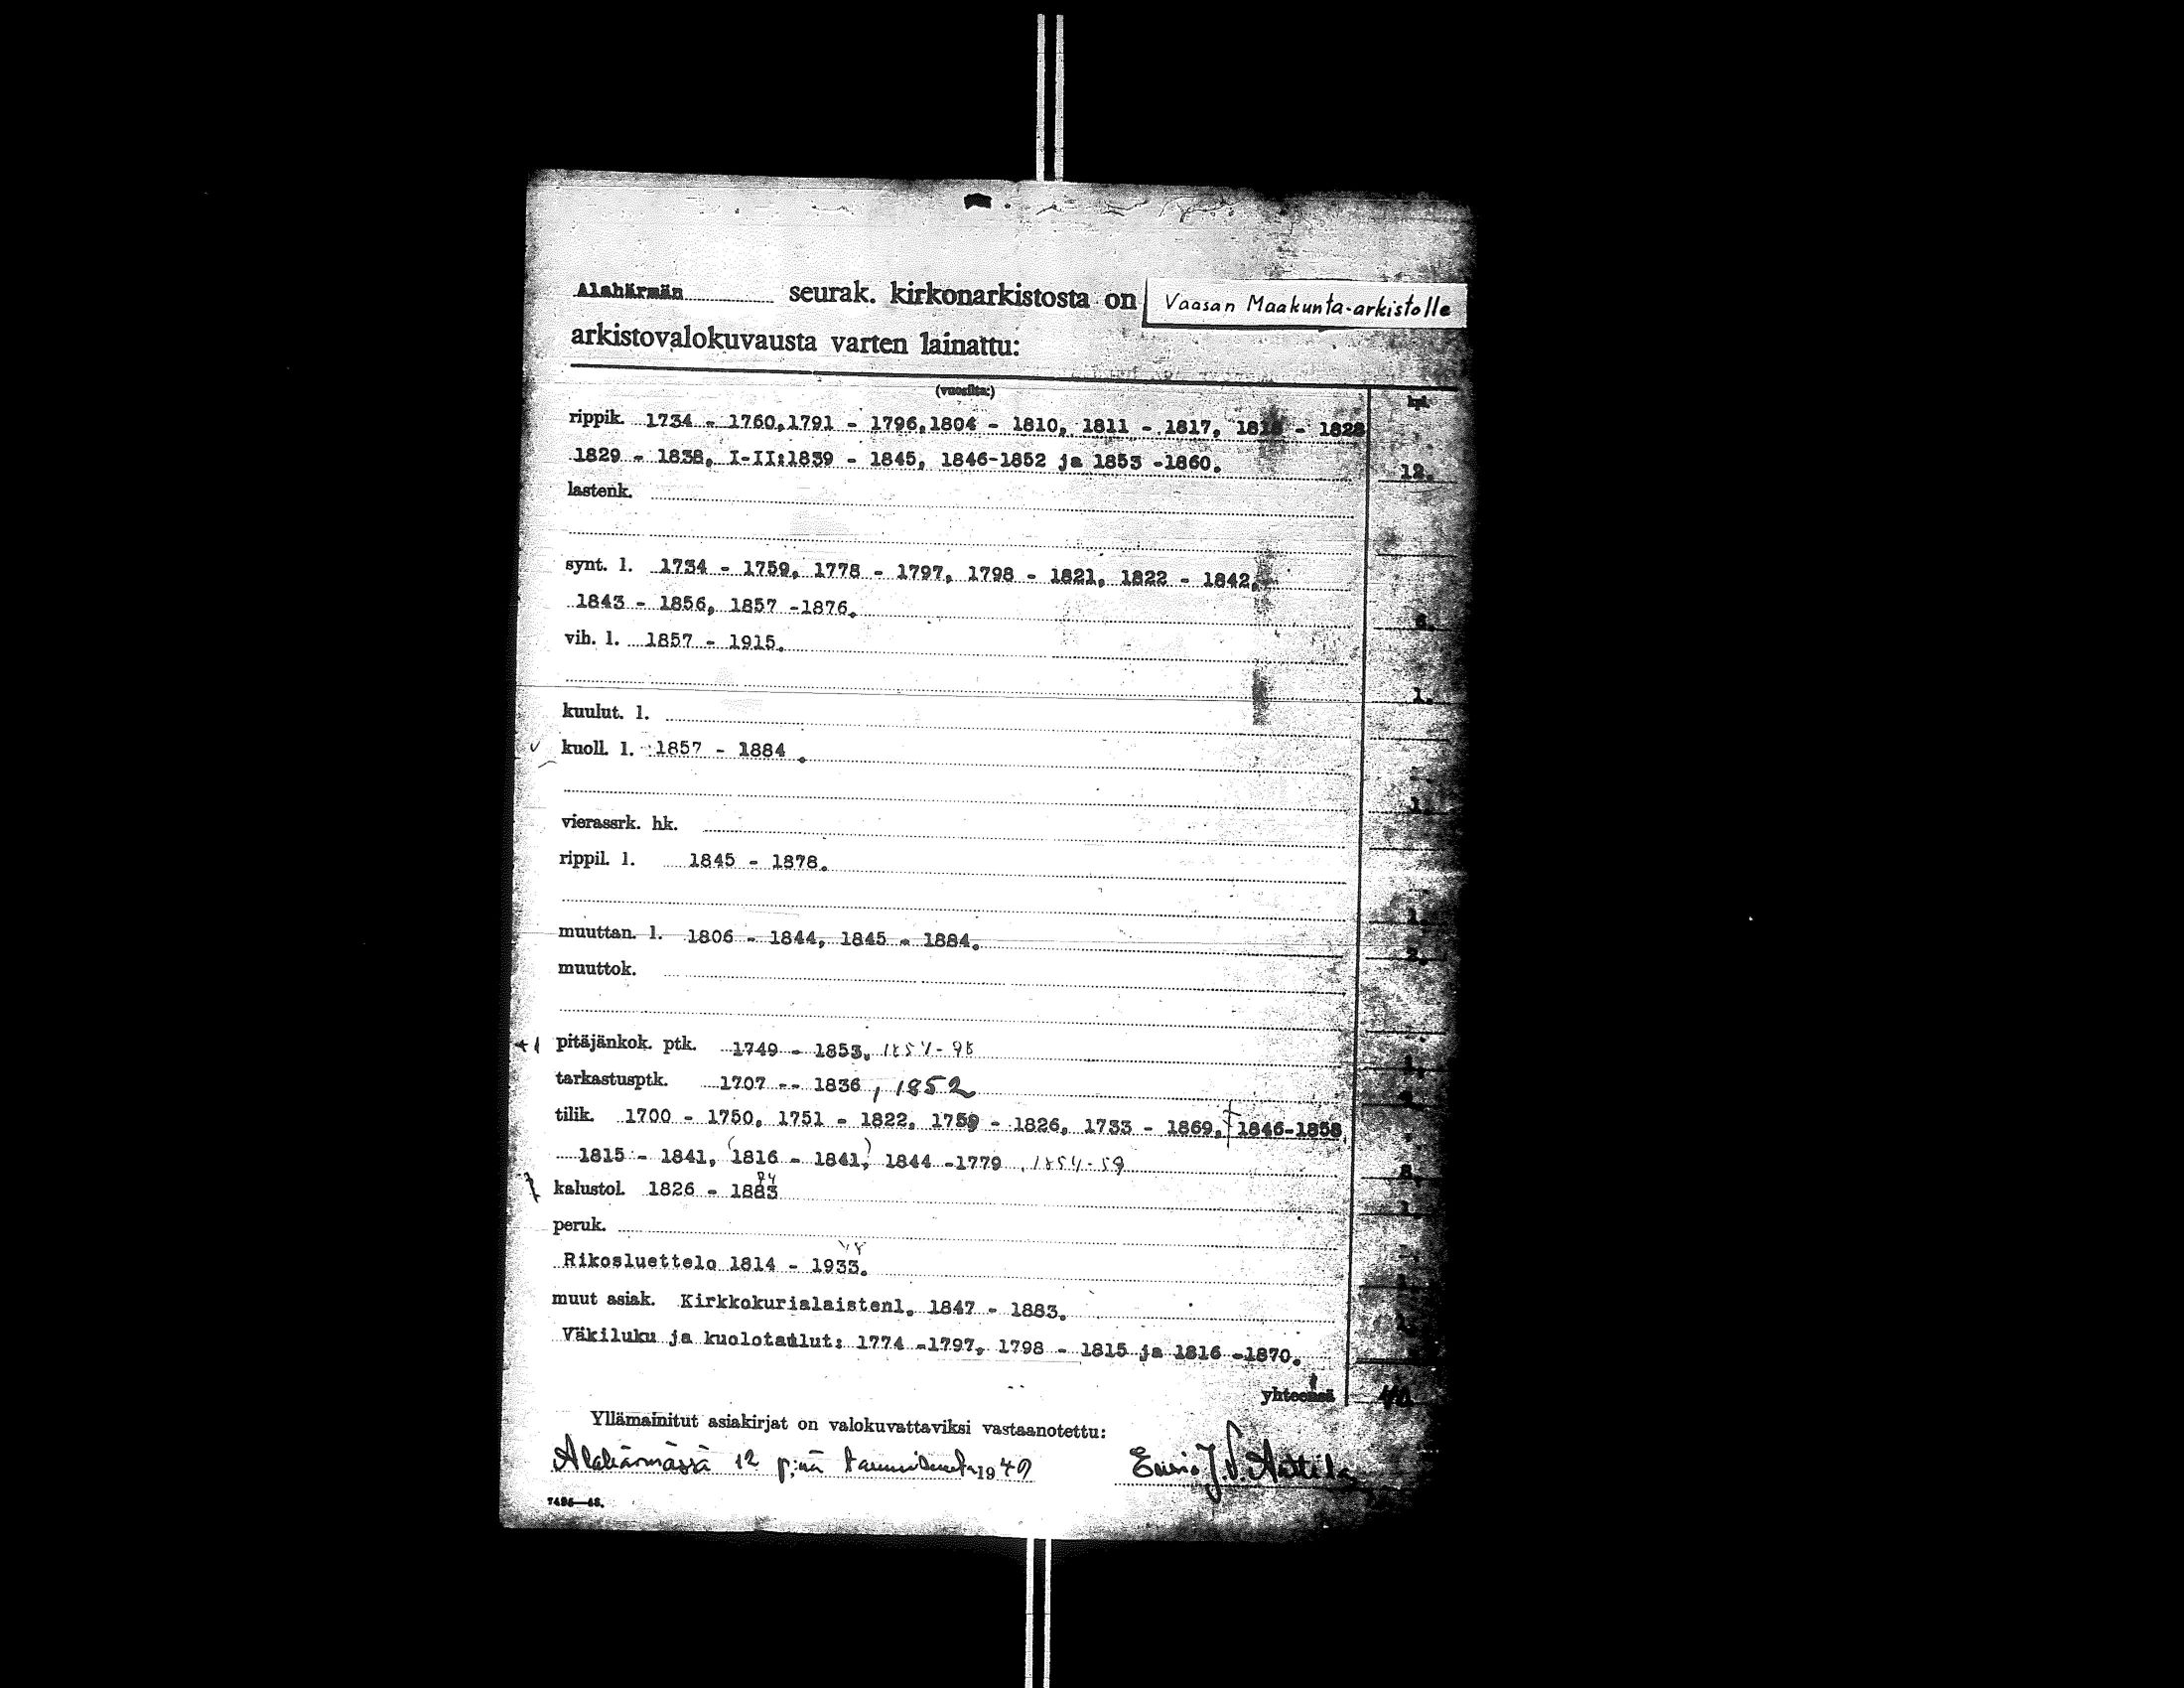 Alahärmän seurak. kirkonarkistosta on Vaasan Maakunta-arkistolle
arkistovalokuvausta varten lainattu:
(vuosilta:)
kpl
rippik. 1734 - 1760,1791 - 1796,1804 - 1810, 1811 - 1817, - 1828
1829 - 1838, I-II:1839 - 1845, 1846-1852 ja 1853 -1860. 12.
lastenk.
synt. l. 1734 - 1759, 1778 - 1797, 1798 - 1821, 1822 - 1842,
1843 - 1856, 1857 -1876. 6.
vih. l. 1857 - 1915.
1.
kuulut. l.
kuoll. l. 1857 - 1884 .
1.
vierassrk. hk.
rippil. l. 1845 - 1878.
1.
muuttan. l. 1806 - 1844, 1845 - 1884. 2.
muuttok.
+1 pitäjänkok. ptk. 1749 - 1853, 1.
tarkastusptk. 1707 -- 1836 , 1852
tilik. 1700 - 1750, 1751 - 1822, 1759 - 1826, 1733 - 1869, 1846-1858
1815 - 1841, (1816 - 1841,) 1844 -1779 , 1854-59 8.
kalustol. 1826 - 1883 84 1.
peruk.
Rikosluettelo 1814 - 1933.
muut asiak. Kirkkokurialaistenl. 1847 - 1883.
Väkiluku ja kuolotaulut: 1774 -1797, 1798 - 1815 ja 1816 -1870.
yhteensä
Yllämainitut asiakirjat on valokuvattaviksi vastaanotettu:
Alahärmässä 12 p:nä 1949
7486—48.